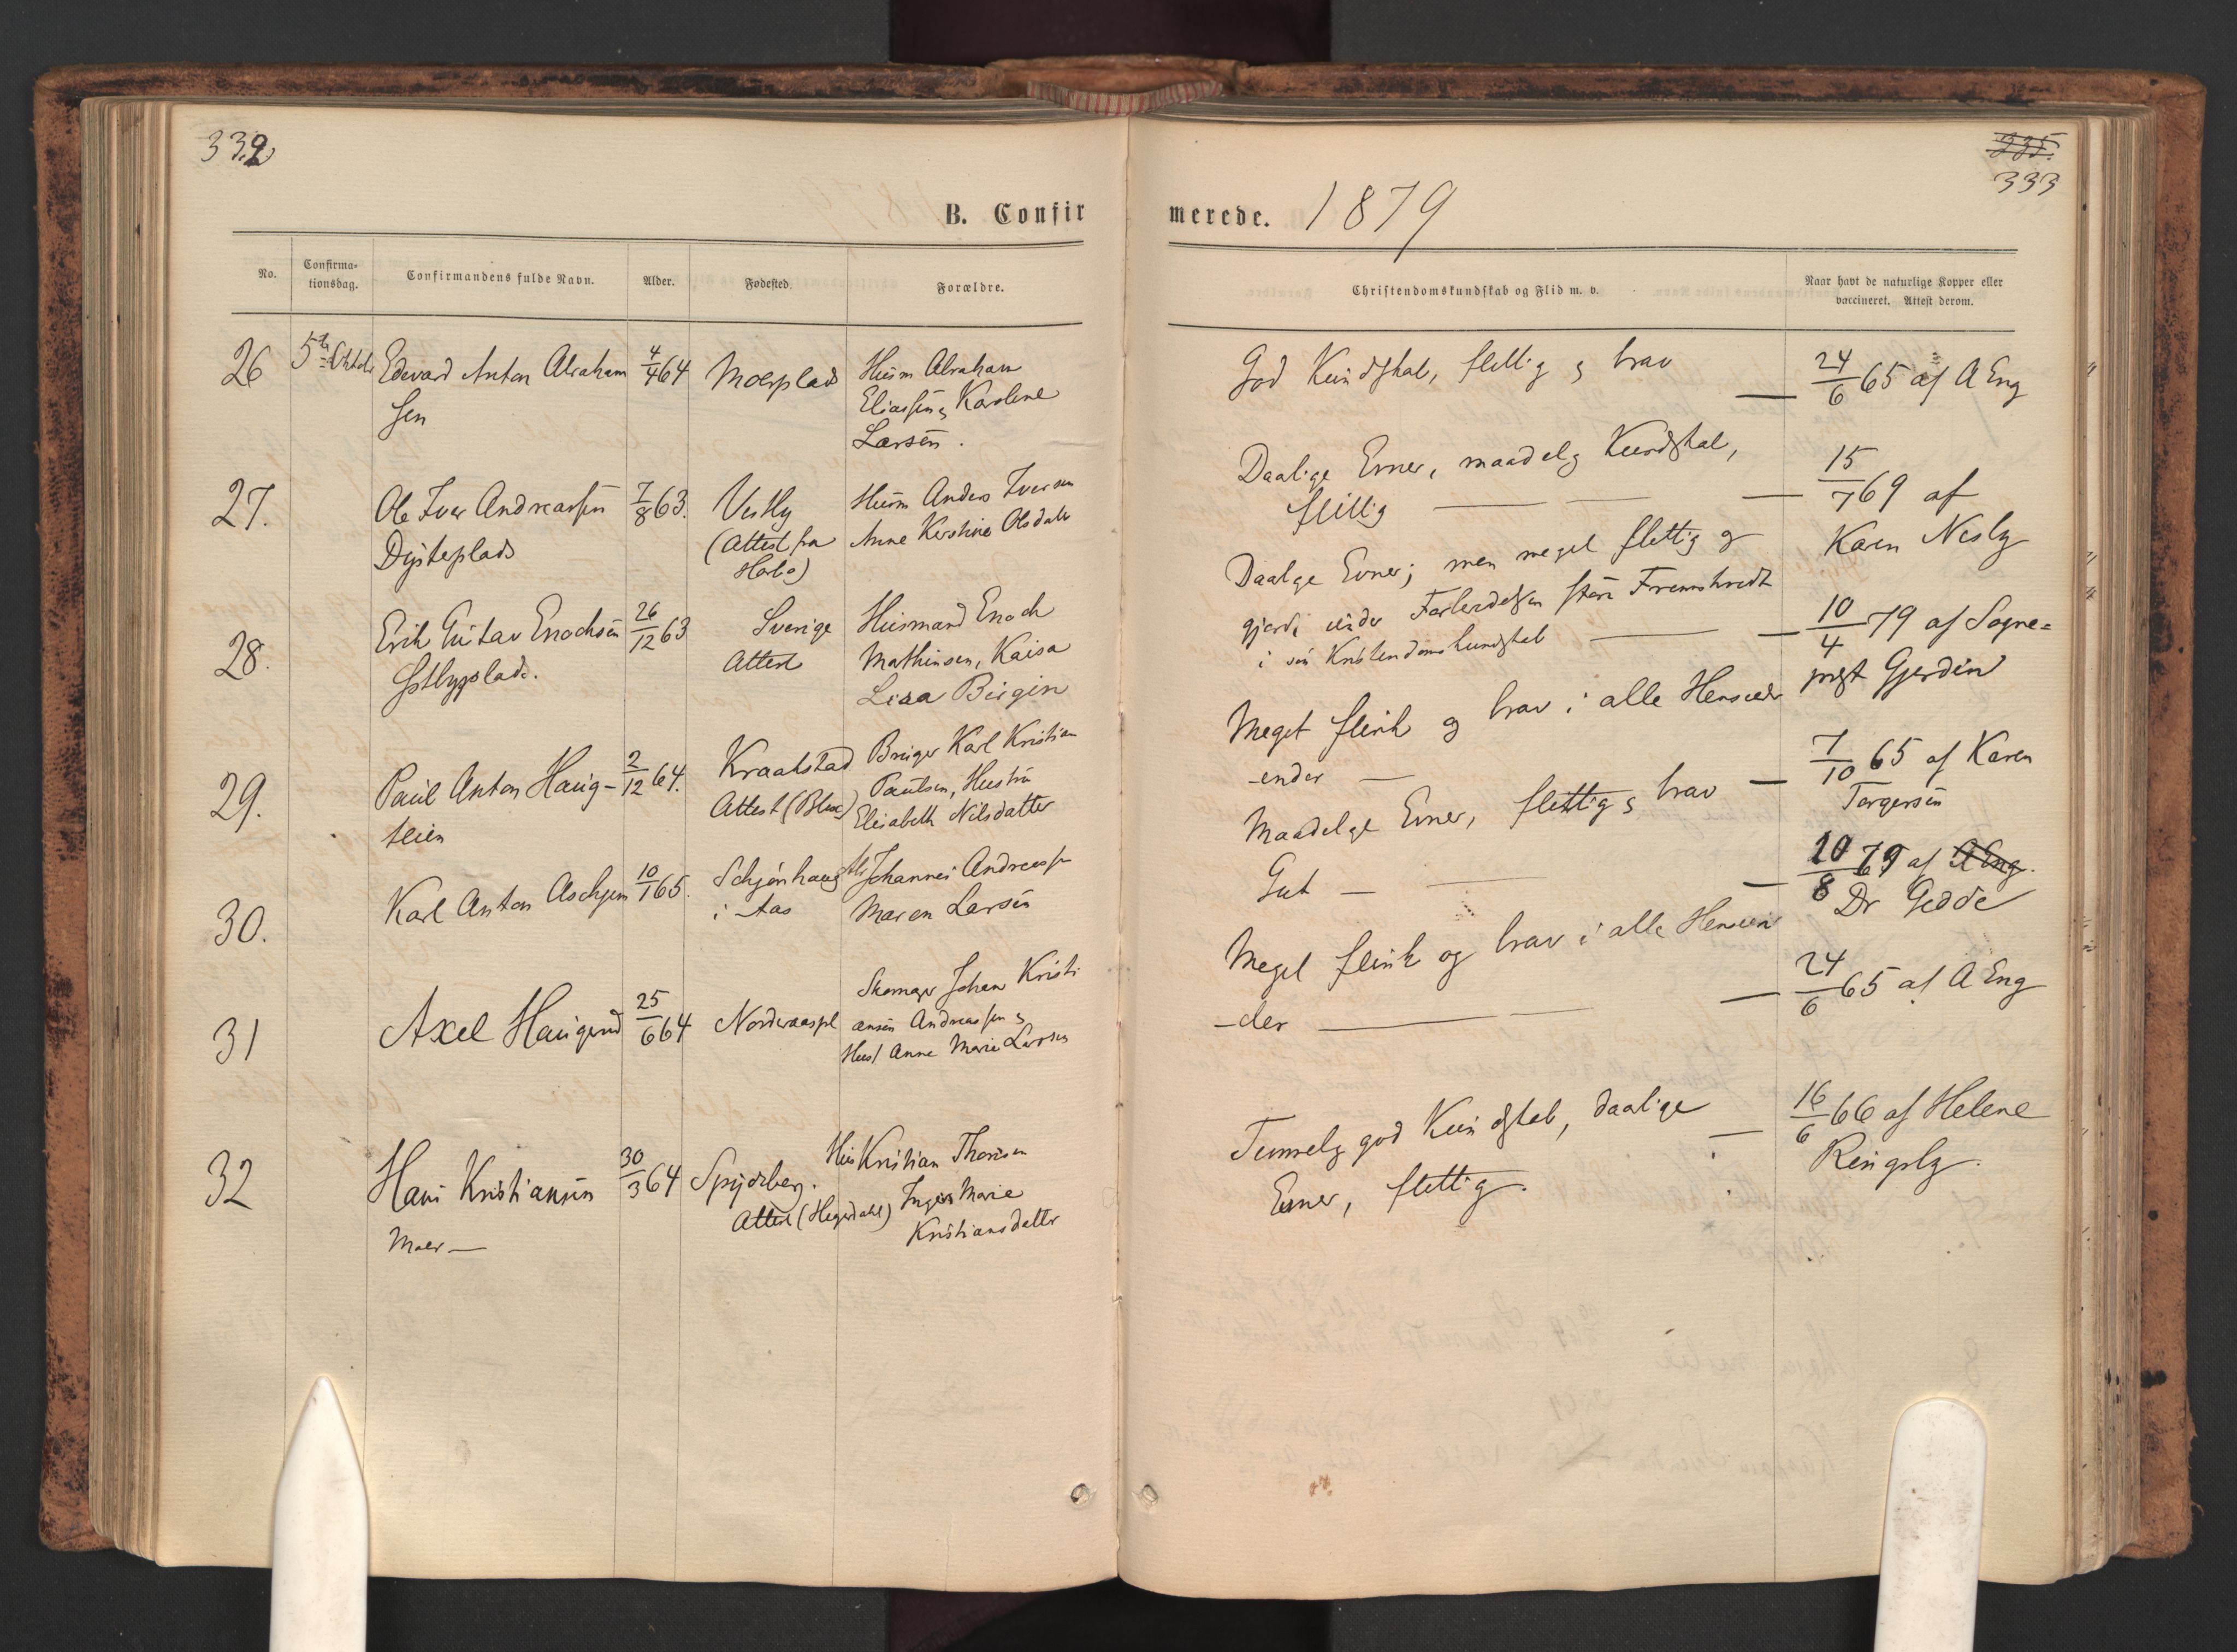 332
335.
333
B. Confirmerede. 1879
No.
Confirma-
tionsdag.
Confirmandens fulde Navn.
Alder.
Fødested.
Forældre.
Christendomskundskab og Flid m. v.
Naar havt de naturlige Kopper eller
vaccineret. Attest derom.
26
5te Oktob
Edevard Anton Abraham
sen
4/4 64
Moerplads
Husm Abraham
Eliassen & Karolene
Larsen.
God Kundskab, flittig & brav
24/6 65 af A Eng
27.
Ole Iver Andreassen
Dysteplads
7/8 63.
Vestby
(Attest fra
Husm Anders Iversen
Anne Kirstine Olsdatter
Daalige Evner, maadelig Kundskab,
flittig
15/7 69 af
Karen Nesby
28.
Erik Gustav Enochsen
Østbyplads.
26/12 63
Sverige
Attest
Husmand Enoch
Mathinsen, Kaisa
Lisa Birgin
Daalige Evner; men meget flittig og
gjorde under Forberedelsen store Fremskridt
i sin Kristendomskundskab
10/4 79 af Sogne=
præst Gjerdin
29.
Paul Anton Haug-
teien
2/12 64.
Kraakstad
Attest (Blux)
Bruger Karl Kristian
Paulsen, Hustru
Elisabeth Nilsdatter
Meget flink og brav i alle Henseender
-ender
7/10 65 af Karen
Torgersen
30.
Karl Anton Aschjem
10/1 65.
Schjønhaug
i Aas
Johannes Andreassen
Maren Larsen
Maadelige Evner, flittig & brav
Gut
20/8 79 af A Eng.
Dr Gedde
31
Axel Haugerud
25/6 64
Norderaaspl
Skomager Johan Kristi
ansen Andreassen &
Hust Anne Marie Larsen
Meget flink og brav i alle Henseen
-der
24/6 65 af A Eng
32
Hans Kristiansen
Moer
30/3 64
Spydeberg.
Attest (Hegerdahl)
Hus Kristian Thoresen
Inger Marie
Kristiansdatter
Temmelig god Kundskab, daalige
Evner, flittig.
16/6 66 af Helene
Ringsby.